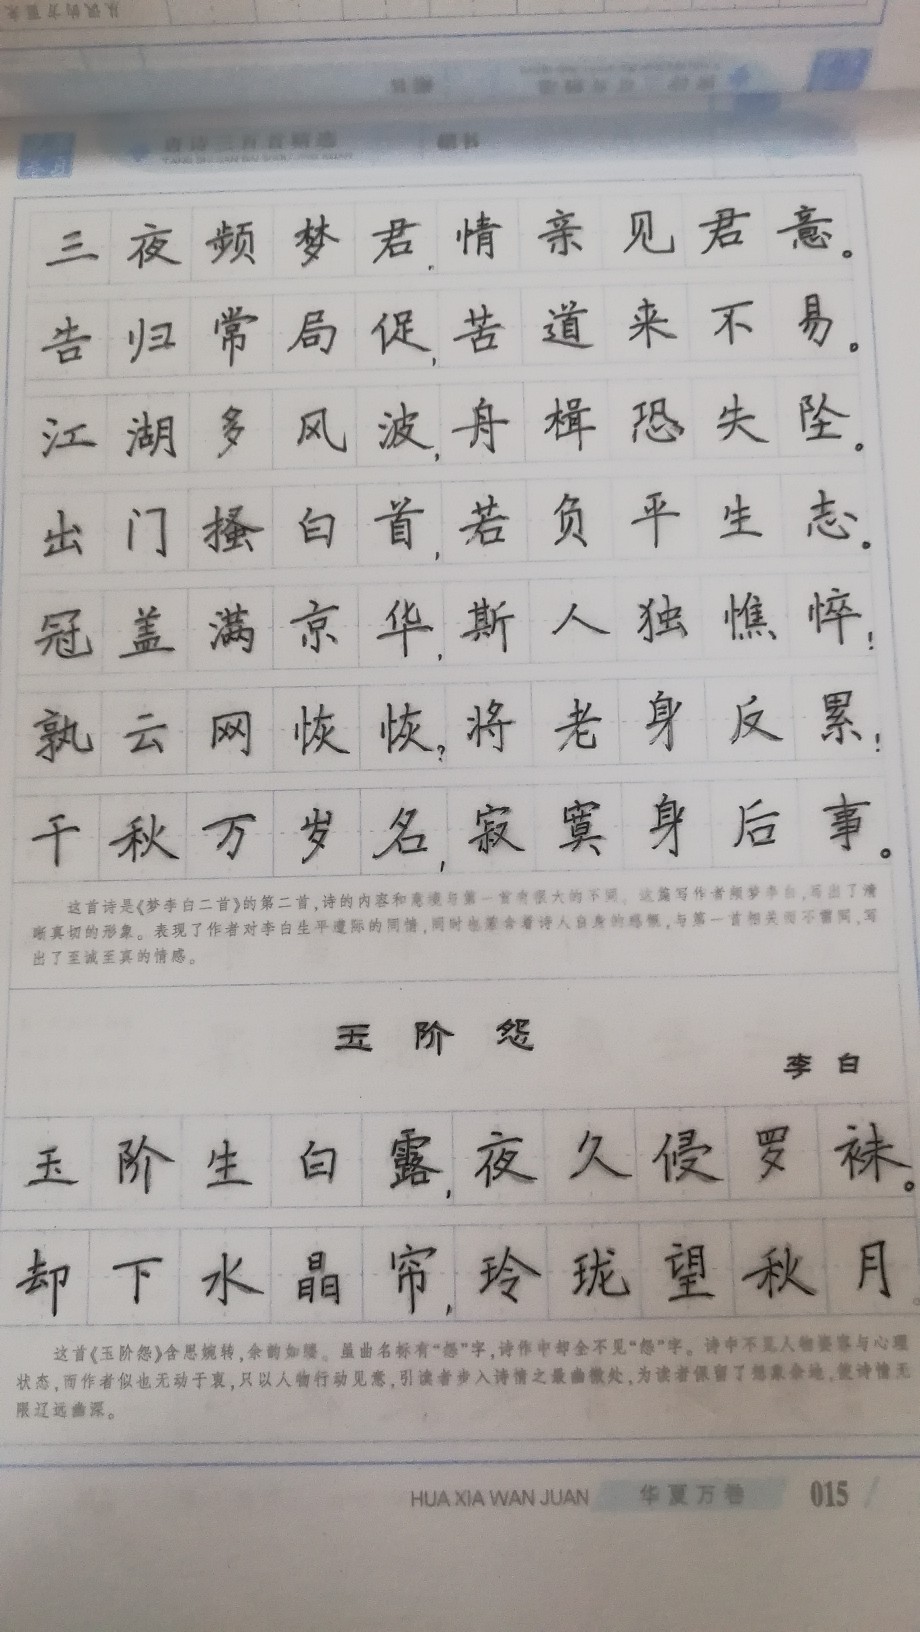 唐诗三百首精选 楷书
三夜频梦君,情亲见君意。
告归常局促,苦道来不易。
江湖多风波,舟楫恐失坠。
出门搔白首,若负平生志。
冠盖满京华,斯人独憔悴!
孰云网恢恢?将老身反累!
千秋万岁名,寂寞身后事。
这首诗是《梦李白二首》的第二首,诗的内容和意境与第一首有很大的不同。这篇写作者频梦李白,写出了清
晰真切的形象。表现了作者对李白生平遭际的同情,同时也兼含着诗人自身的感慨,与第一首相关而不雷同,写
出了至诚至真的情感。
玉阶怨
李白
玉阶生白露,夜久侵罗袜。
却下水晶帘,玲珑望秋月。
这首《玉阶怨》含思婉转,余韵如缕。虽曲名标有“怨”字,诗作中却全不见“怨”字。诗中不见人物姿容与心理
状态,而作者似也无动于衷,只以人物行动见意,引读者步入诗情之最幽微处,为读者保留了想象余地,使诗情无
限辽远幽深。
HUA XIA WAN JUAN 华夏万卷 015